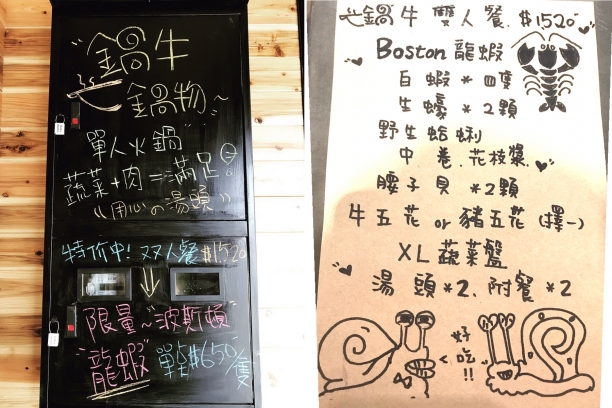 "鍋牛
鍋物~
單人火鍋
蔬菜+肉=滿足
《用心の湯頭》
特价中! 双人餐$1520
限量~"波斯頓"
"龍蝦" 單點$650/隻
鍋牛 雙人餐.$1520
Boston 龍蝦
白蝦*四隻
生蠔*2顆
野生蛤蜊
中卷.花枝漿.
腰子貝*2顆
牛五花 or 豬五花(擇一)
XL蔬菜盤
湯頭*2、附餐*2
好吃!!